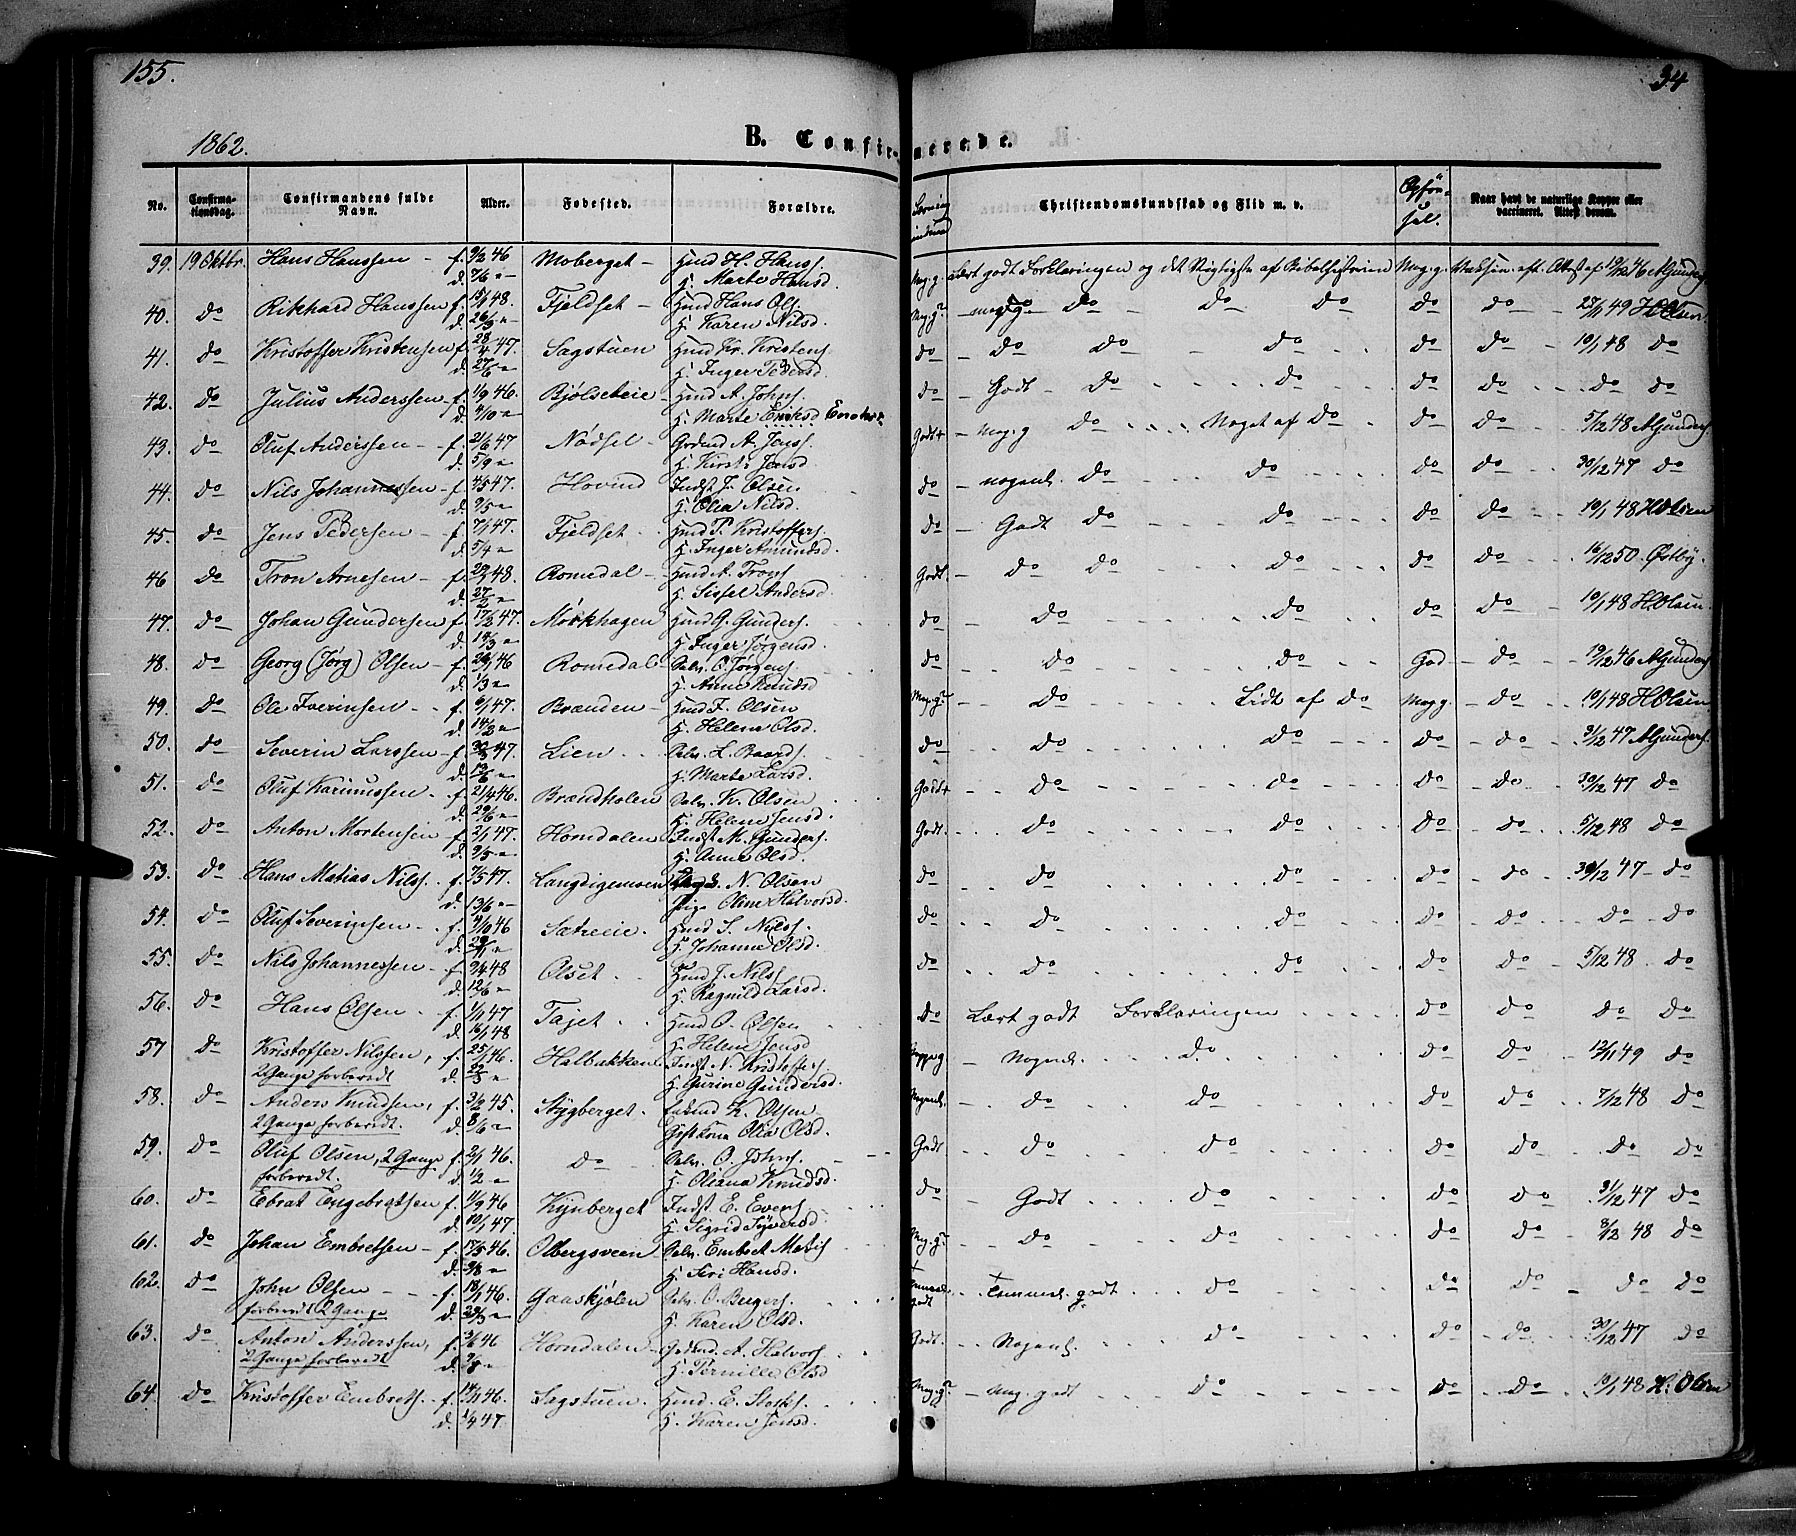 155.
34
1862.
B. Confirmerede.
No. Confirmationsdag. Confirmandens fulde Navn. Alder. Fødested. Forældre. Christendomskundskab og Flid m. v. Opførsel. Naar havt de naturlige Kopper eller vaccineret. Attest derom.
39. 19 Oktbr. Hans Hanssen - f. 9/2 46 Moberget - Hmd H. Hanss. Meg. g. Lært godt Forklaringen og det Vigtigste af Bibelhistorien Meg. g. Vaksin. eft. Attest af 19/12 46 A. Gunders.
d. 7/6 " - K. Marte Hansd.
40. do Rikhard Hanssen f. 15/1 48. Fjeldset - Hmd Hans Ols. Meg. g. - meg. g. do do do do do 27/11 49 H. Olsen.
d. 26/3 " - K. Karen Nilsd.
41. do Kristoffer Kristensen f. 28/4 47. Sagstuen Hmd Kr. Kristens. do - do do - do do do 10/1 48 do
d. 27/6 " - K. Inger Pedersd.
42. do Julius Anderssen f. 1/9 46. Bjølseteie Hmd A. Johns. do - Godt - do do do do do do
d. 4/10 " - K. Marte
43. do Oluf Anderssen - f. 21/6 47 Nødset - A. Jenss. Godt+ - Meg. g do Noget af do do do 5/12 48 A. Gunders.
d. 5/9 " - K. Kirsti Jensd.
44. do Nils Johannessen - f. 4/5 47. Hovind Indst J. Olsen do - nogenl. do do do do 30/12 47 do
d. 9/5 " - K. Olia Nilsd.
45. do Jens Pedersen - f. 7/1 47. Fjeldset - Hmd P. Kristoffers. do - Godt do do do do 10/1 48 H. Olsen
d. 5/4 " - K. Inger Amundsd.
46 do Tron Arnesen - f. 48. Romedal - Hmd A. Trons. Godt. - do do do do do 16/12 50. Østby.
d. 27/2 " - K. Sissel Andersd.
47. do Johan Gundersen f. 17/2 47. Mørkhagen Hmd G. Gunders. do - do do do do 10/1 48 H. Olsen.
d. 14/3 " - K. Inger Jørgensd.
48. do Georg (Jørg) Olsen - f. 46 Romedal Selv. O. Jørgens. do do do God - do 19/12 46 A. Gunders.
d. 1/3 " - K. Anne Knudsd
49. do Ole Iverinsen - f. 6/1 47. Brænden - Hmd I. Olsen Meg. g. - do Lidt af do Meg. g. - do 10/1 48 H. Olsen.
d. 14/2 " - K. Helene Olsd.
50. do Severin Larssen - f. 47. Lien Selv. L. Baards. do do do do do 31/12 47 A. Gunders.
d. 13/6 " - K. Marte Larsd.
51. do Oluf Karinussen - f. 21/4 46. Brændholen Selv. K. Olsen Godt+ do do do do 30/12 47 do
d. 29/6 " - K. Helene Jensd.
52. do Anton Mortensen f. 2/1 47. Horndalen Indst M. Gunders. Godt. do do do do 5/12 48 do
d. 9/5 " - K. Anne Olsd.
53. do Hans Matias Nilss. f. 7/5 47. Langdigemoen N. Olsen do do do do do 30/12 47 - do
d. 13/6 " - Pige Oline Halvorsd.
54. do Oluf Severinsen - f. 4/10 46 Sætreeie. Hmd S. Nilss. do do do do do do do
d. 29/11 " - K. Johanne Olsd.
55. do Nils Johannessen - f. 9/4 48 Olset Hmd J. Nilss. do do do do do 5/12 48 do
d. 12/6 " - K. Ragnild Larsd.
56. do Hans Olsen f. 1/1 47 Tajet Hmd O. Olsen do Lært godt Forklaringen do do do do
d. 16/1 48 K. Helene Jensd
57 do Kristoffer Nilssen, f. 25/1 46. Halbakken Indst N. Kristoffers. - Nogenl. do do do 12/11 49 do
2 Gange forberedt d. 22/3 " - K. Gurine Gundersd.
58. do Anders Knudsen, f. 3/2 45. Stygberget. K. Olsen Nogenl. - do do do do 7/12 48 do
2 Gange forberedt. d. 8/6 " - Gift Kone Olia Olsd.
59. do Oluf Olsen, 2 Gange f. 2/1 46. do Selv. O. Johns. Godt do do do do do do
forberedt. d. 1/2 " - K. Oliana Knudsd.
60. do Ebrat Engebretsen f. 11/9 46 Kynberget Indst. E. Evens. do Godt do do do 31/12 47 do
d. 10/1 47 K. Sigrid Syversd.
61. do Johan Embretsen - f. 17/5 46. Olbergsveen Selv. Embret Matis. Meg. g. do do do do 3/12 48 do
d. 3/8 " - K. Siri Hansd.
62. do John Olsen - f. 18/1 46. Gaaskjølen Selv. O. Bergers. Temmel. godt Temmel. godt do do do do do
forberedt 2 Gange d. 29/3 " - K. Karen Olsd.
63. do Anton Anderssen, f. 3/6 46 Horndalen - A. Halvors. Godt. Nogenl. do do do 30/12 47 do
2 Gange forberedt d. 9/8 " - K. Pernille Olsd
64. do Kristoffer Embrets. f. 14/11 46. Sagstuen Hmd. E. Meg. g. - Meg. godt do do do 10/1 48 H. Olsen
d. 1/4 47. K. Karen Jensd.